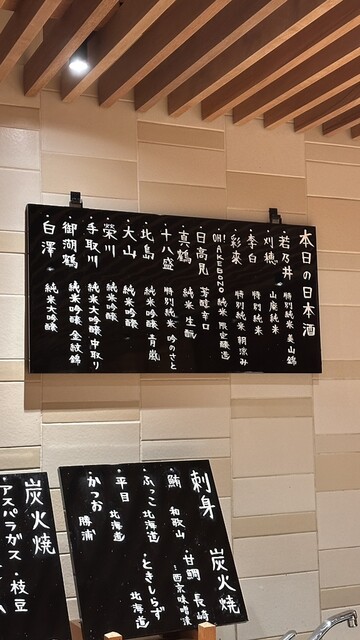 本日の日本酒
・若乃井 特別純米 美山錦
・刈穂 山廃純米
・李白 特別純米
・彩來 特別純米 朝涼み
・OH!AKEBONO 純米 限定醸造
・日高見 芳醇辛口
・真鶴 純米 生酛
・十八盛 特別純米 吟のさと
・北島 純米吟醸 青嵐
・大山 純米吟醸
・榮川 純米吟醸
・手取川 純米大吟醸 中取り
・御湖鶴 純米吟醸 金紋錦
・白澤 純米大吟醸
刺身
・鮪 和歌山
・ふっこ 北海道
・平目 北海道
・かつお 勝浦
炭火焼
・甘鯛 長崎
西京味噌漬
・ときしらず 北海道
炭火焼
アスパラガス・枝豆